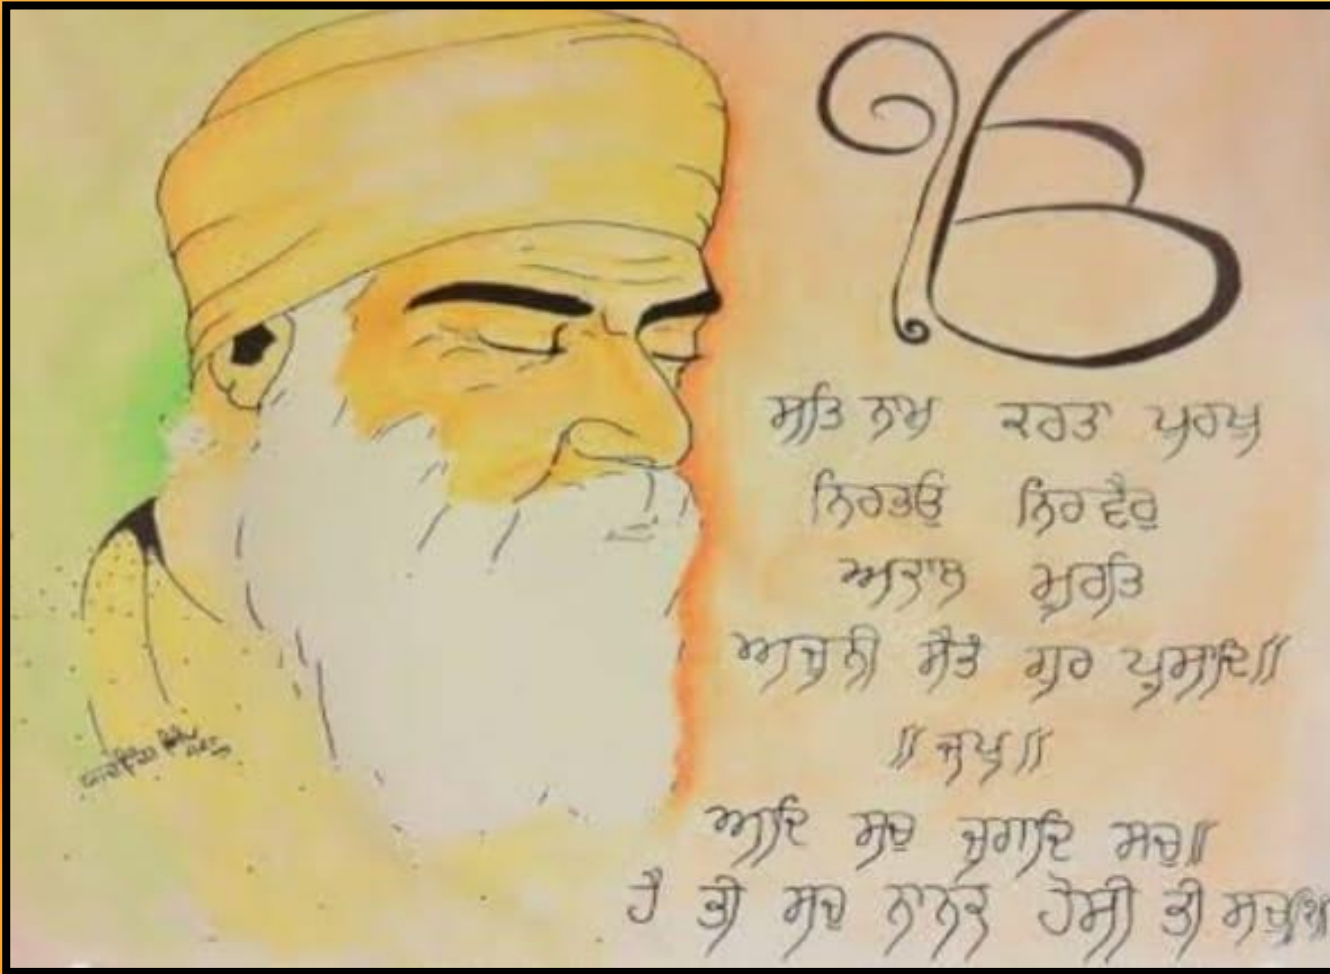 ੴ
ਸਤਿ ਨਾਮ ਕਰਤਾ ਪੁਰਖੁ
ਨਿਰਭਉ ਨਿਰਵੈਰੁ
ਅਕਾਲ ਮੂਰਤਿ
ਅਜੂਨੀ ਸੈਭੰ ਗੁਰ ਪ੍ਰਸਾਦਿ॥
॥ਜਪੁ॥
ਆਦਿ ਸਚੁ ਜੁਗਾਦਿ ਸਚੁ॥
ਹੈ ਭੀ ਸਚੁ ਨਾਨਕ ਹੋਸੀ ਭੀ ਸਚੁ॥੧॥